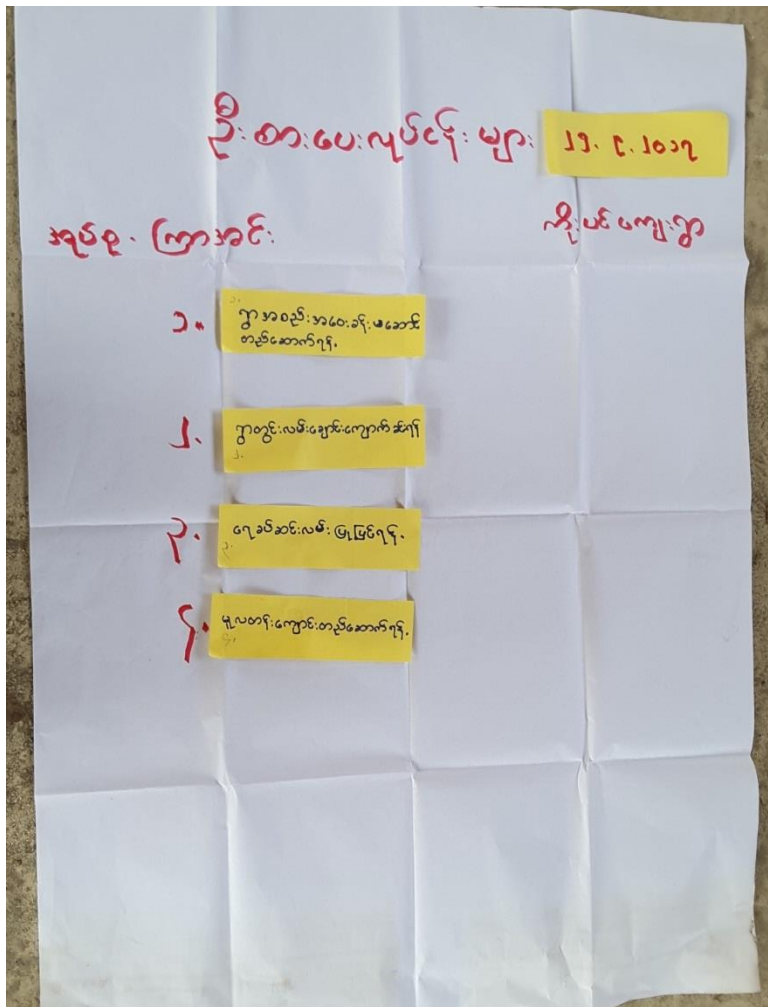 ဦးစားပေးလုပ်ငန်းများ ၂၁.၉.၂၀၁၇
အုပ်စု. ကြာအင်း ကိုးပင်ကျေးရွာ
၁။ ရွာအစည်းအဝေးခန်းမဆောင်
တည်ဆောက်ရန်.
၂. ရွာတွင်းလမ်းချောင်းကျောက်ခင်းရန်
၃. ရေခပ်ဆင်းလမ်းပြုပြင်ရန်.
၄. မူလတန်းကျောင်းတည်ဆောက်ရန်.